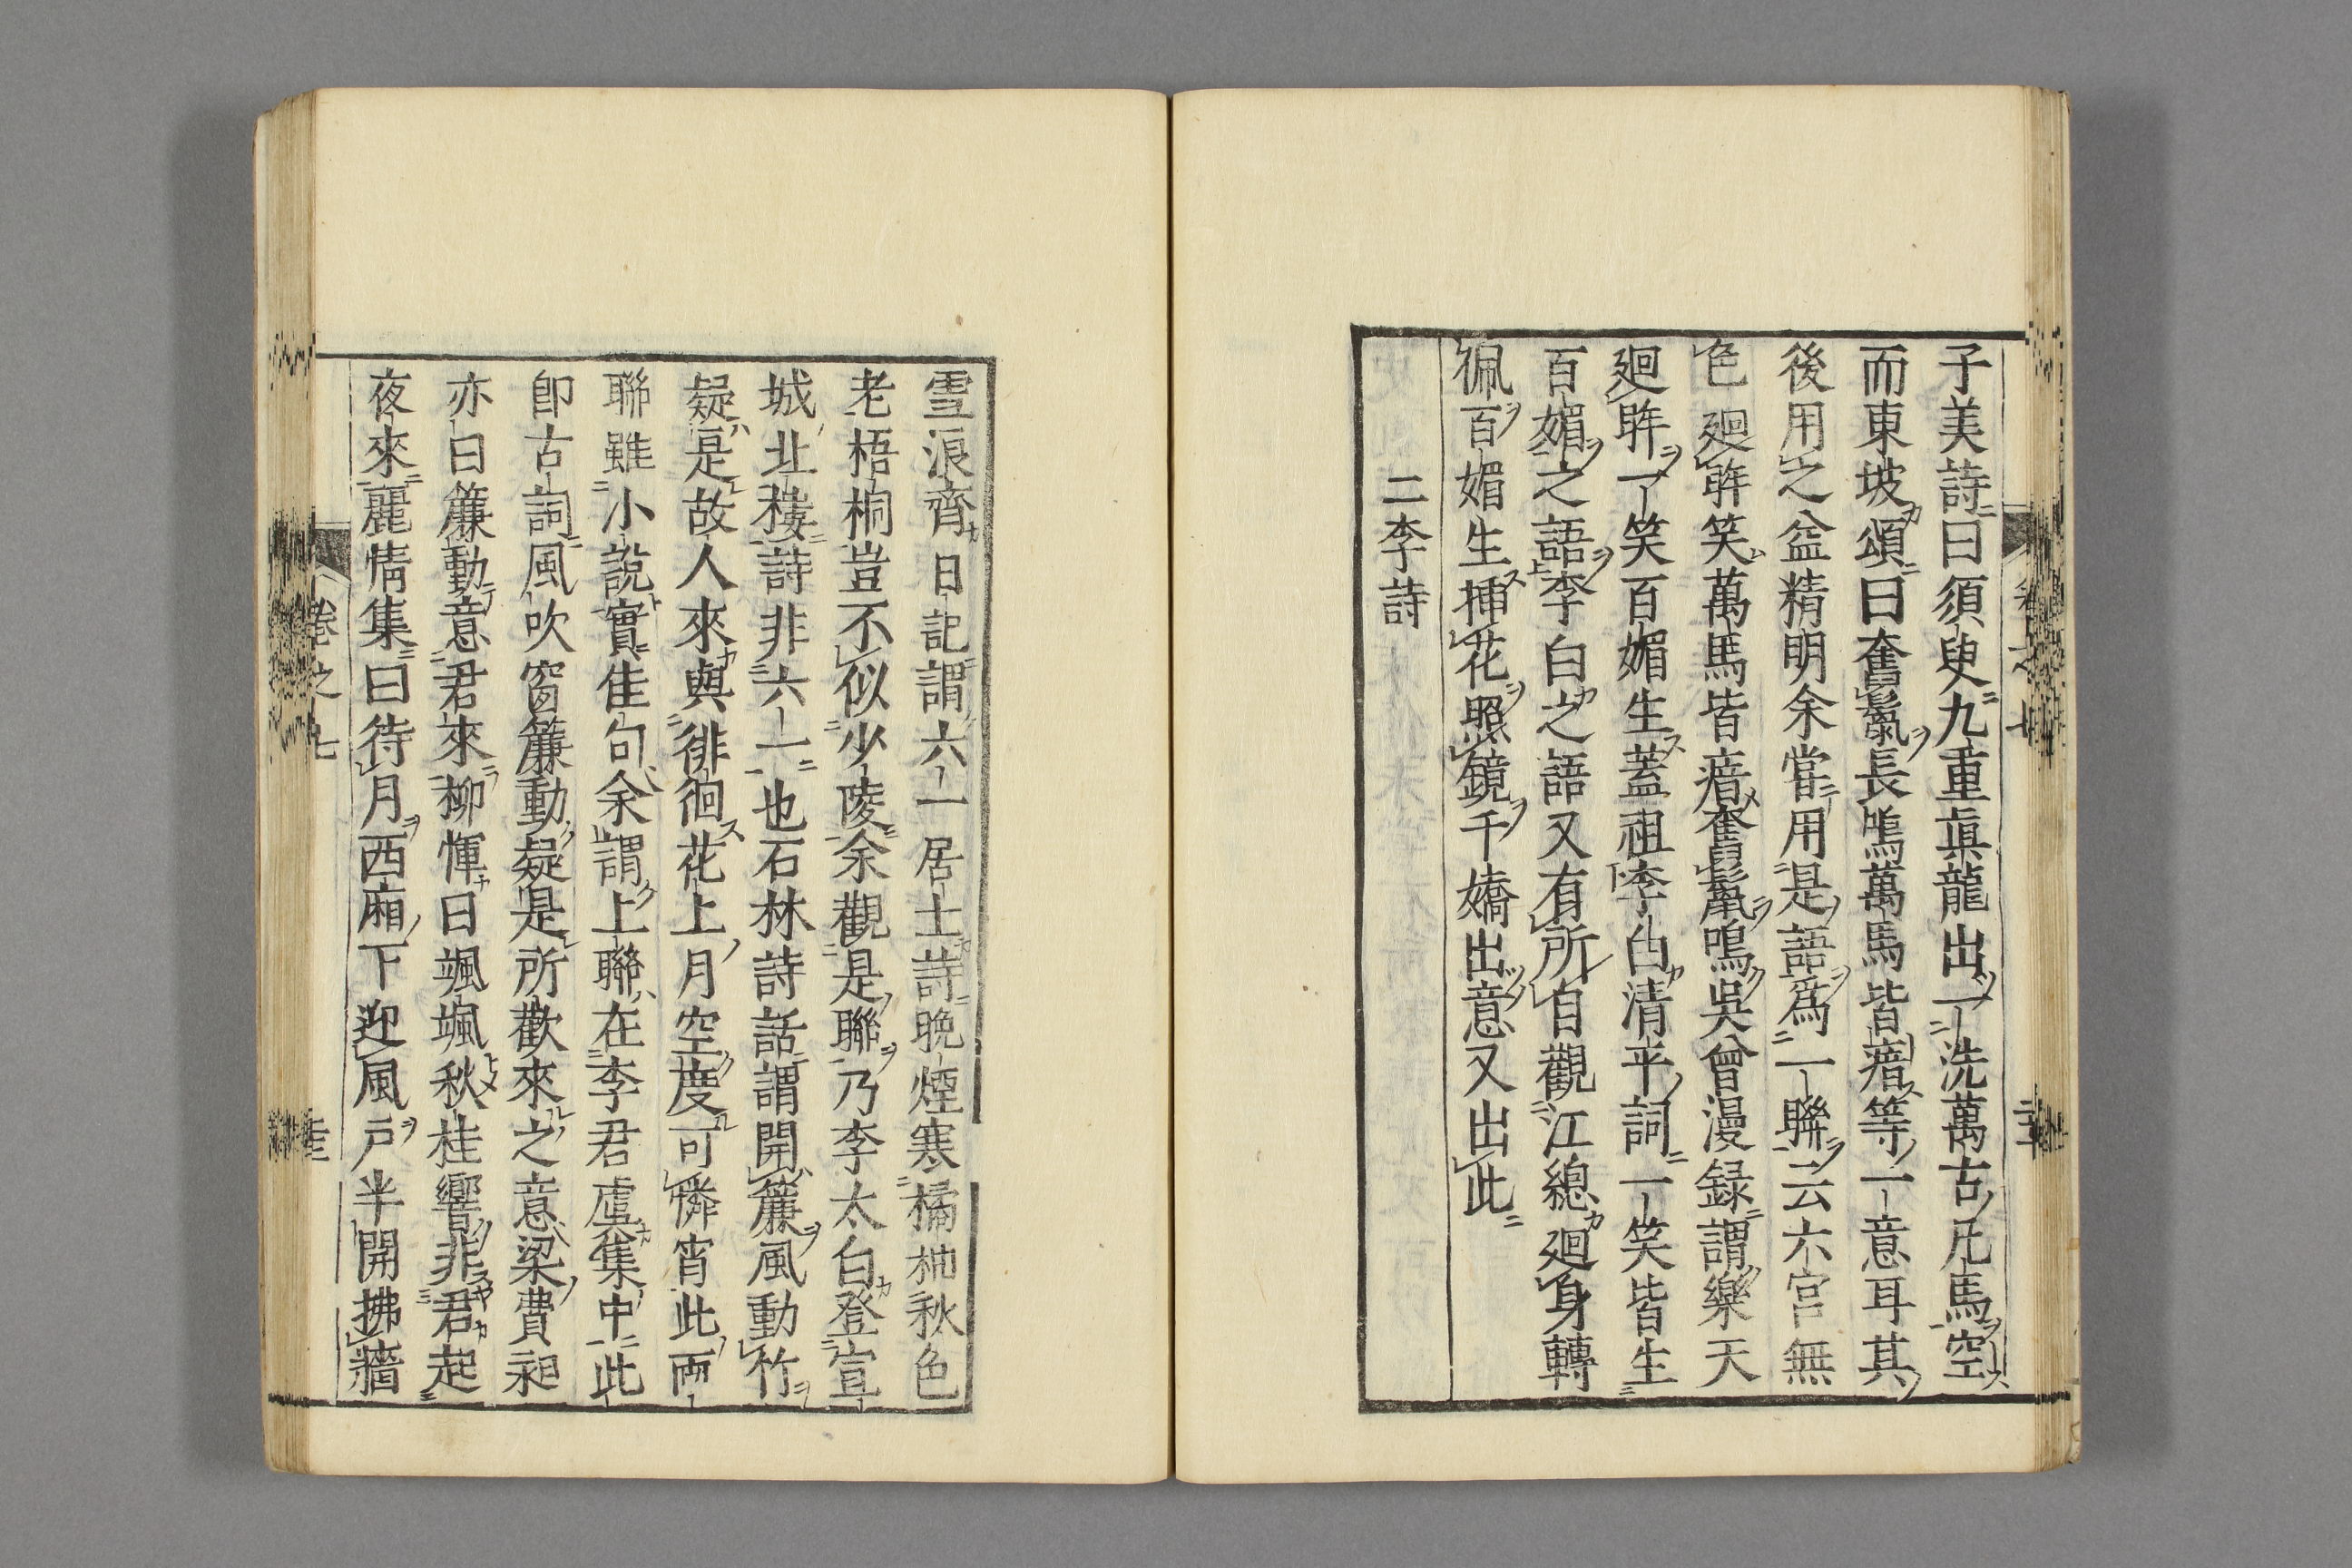 子美詩曰須臾九重眞龍出一洗萬古凡馬空
而東坡頌曰奮鬣長鳴萬馬皆瘖等一意耳其
後用之益精明余嘗用是語爲一聯云六宮無
色廻眸笑萬馬皆瘖奮鬣鳴吳曾漫録謂樂天
廻眸一笑百媚生蓋祖李白清平詞一笑皆生
百媚之語李白之語又有所自觀江總廻身轉
佩百媚生挿花照鏡千嬌出意又出此
二李詩
雪浪齊日記謂六一居士詩晩煙寒橘柚秋色
老梧桐豈不似少陵余觀是聯乃李太白登宣
城北樓詩非六一也石林詩話謂開簾風動竹
疑是故人來與徘徊花上月空度可憐宵此兩
聯雖小說實佳句余謂上聯在李君虞集中此
卽古詞風吹窗簾動疑是所歡來之意梁費昶
亦曰簾動意君來柳惲曰颯颯秋桂響非君起
夜來麗情集曰待月西廂下迎風戸半開拂牆
卷之七